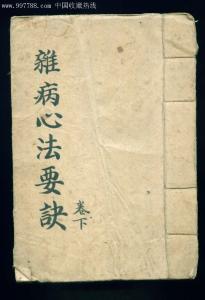 www.997788.com 中国收藏热线
雜病心法要訣
卷下